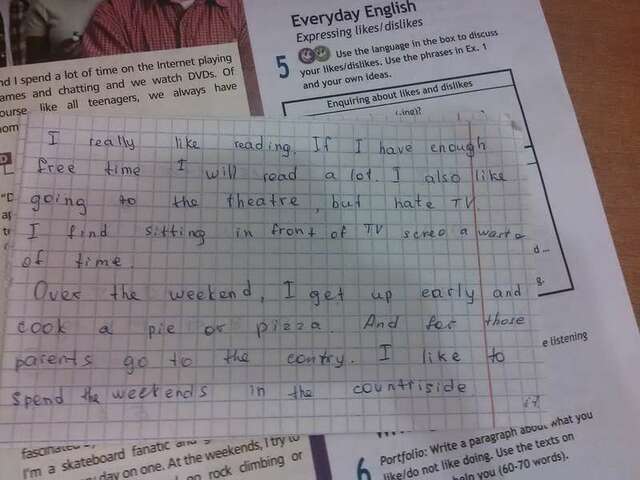 Everyday English
Expressing likes/dislikes
5 Use the language in the box to discuss
your likes/dislikes. Use the phrases in Ex. 1
and your own ideas.
Enquiring about likes and dislikes
nd I spend a lot of time on the Internet playing
ames and chatting and we watch DVDs. Of
ourse like all teenagers, we always have
I really like reading. If I have enough
free time I will read a lot. I also like
going to the theatre, but hate TV
I find sitting in front of TV screo a waste
of time.
Over the weekend, I get up early and
cook a pie or pizza. And for those
parents go to the contry. I like to
spend the weekends in the countriside
d...
g.
e listening
I'm a skateboard fanatic and
day on one. At the weekends, I try to
on rock climbing or
6 Portfolio: Write a paragraph about what you
like/do not like doing. Use the texts on
help you (60-70 words).